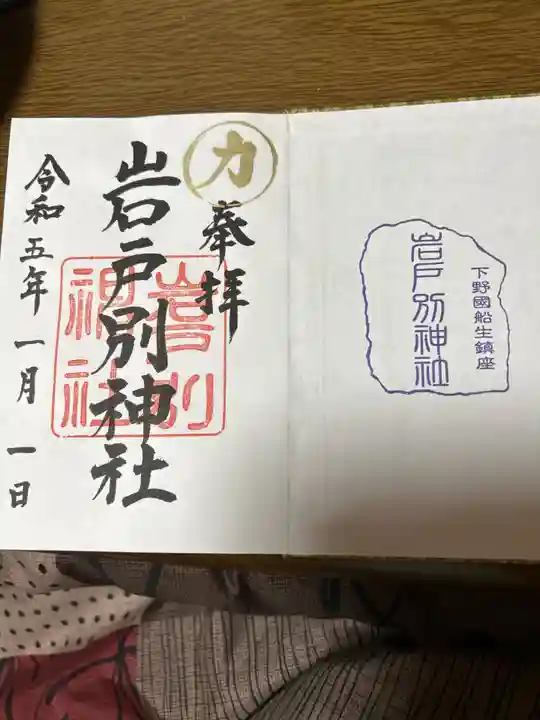 下野國船生鎮座
岩戸別神社
力
奉拝
岩戸別神社
岩戸別
神社
令和五年一月一日